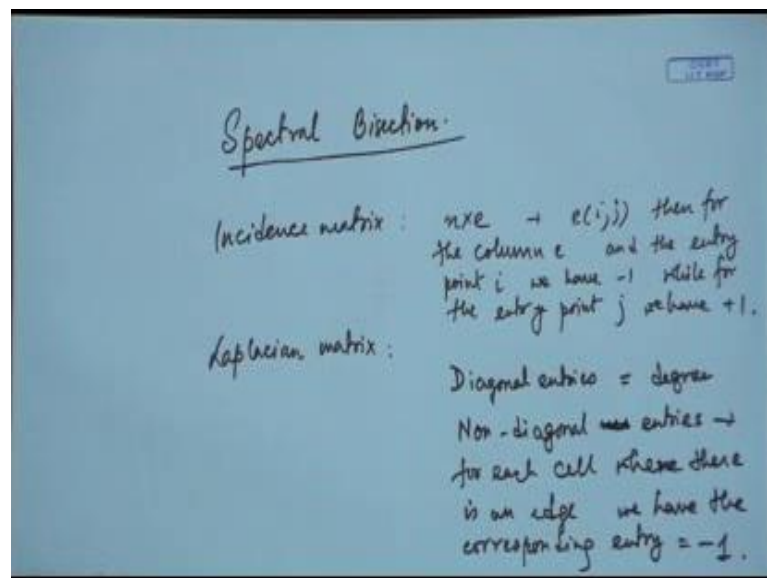 Spectral Bisection.
Incidence matrix : n×e → e(i,j) then for
the column e and the entry
point i we have -1 while for
the entry point j we have +1.
Laplacian matrix :
Diagonal entries = degree
Non-diagonal entries →
for each cell where there
is an edge we have the
corresponding entry = -1.